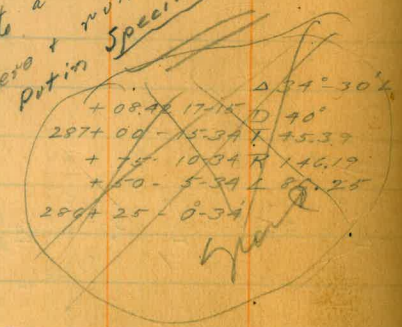 te a
zero + run
Put in Special
Δ 34°-30'L
+ 08.42 17-15 D 40°
287+ 00 - 15-34 T 45.39
+ 75 - 10-34 R 146.19
+ 50 - 5-34 L 86.25
286+ 25 - 0-34